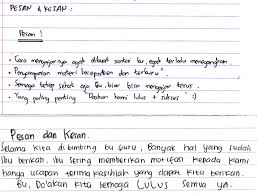 PESAN & KESAN :
Pesan !
• Cara mengajarnya agak dibuat santai bu, agar terlalu menegangkan.
• Penyampaian materi kecepatan dan terburu".
• Semoga tetap sehat aja bu, biar bisa mengajar terus.
• Yang paling penting Doakan kami lulus + sukses" :)
Pesan dan Kesan.
Selama kita dibimbing bu Guru, Banyak hal yang sudah
Ibu berikan. Ibu sering memberikan motivasi kepada kami
hanya ucapan terima kasihlah yang dapat kita berikan.
Bu, Do'akan kita semoga Lulus Semua ya.